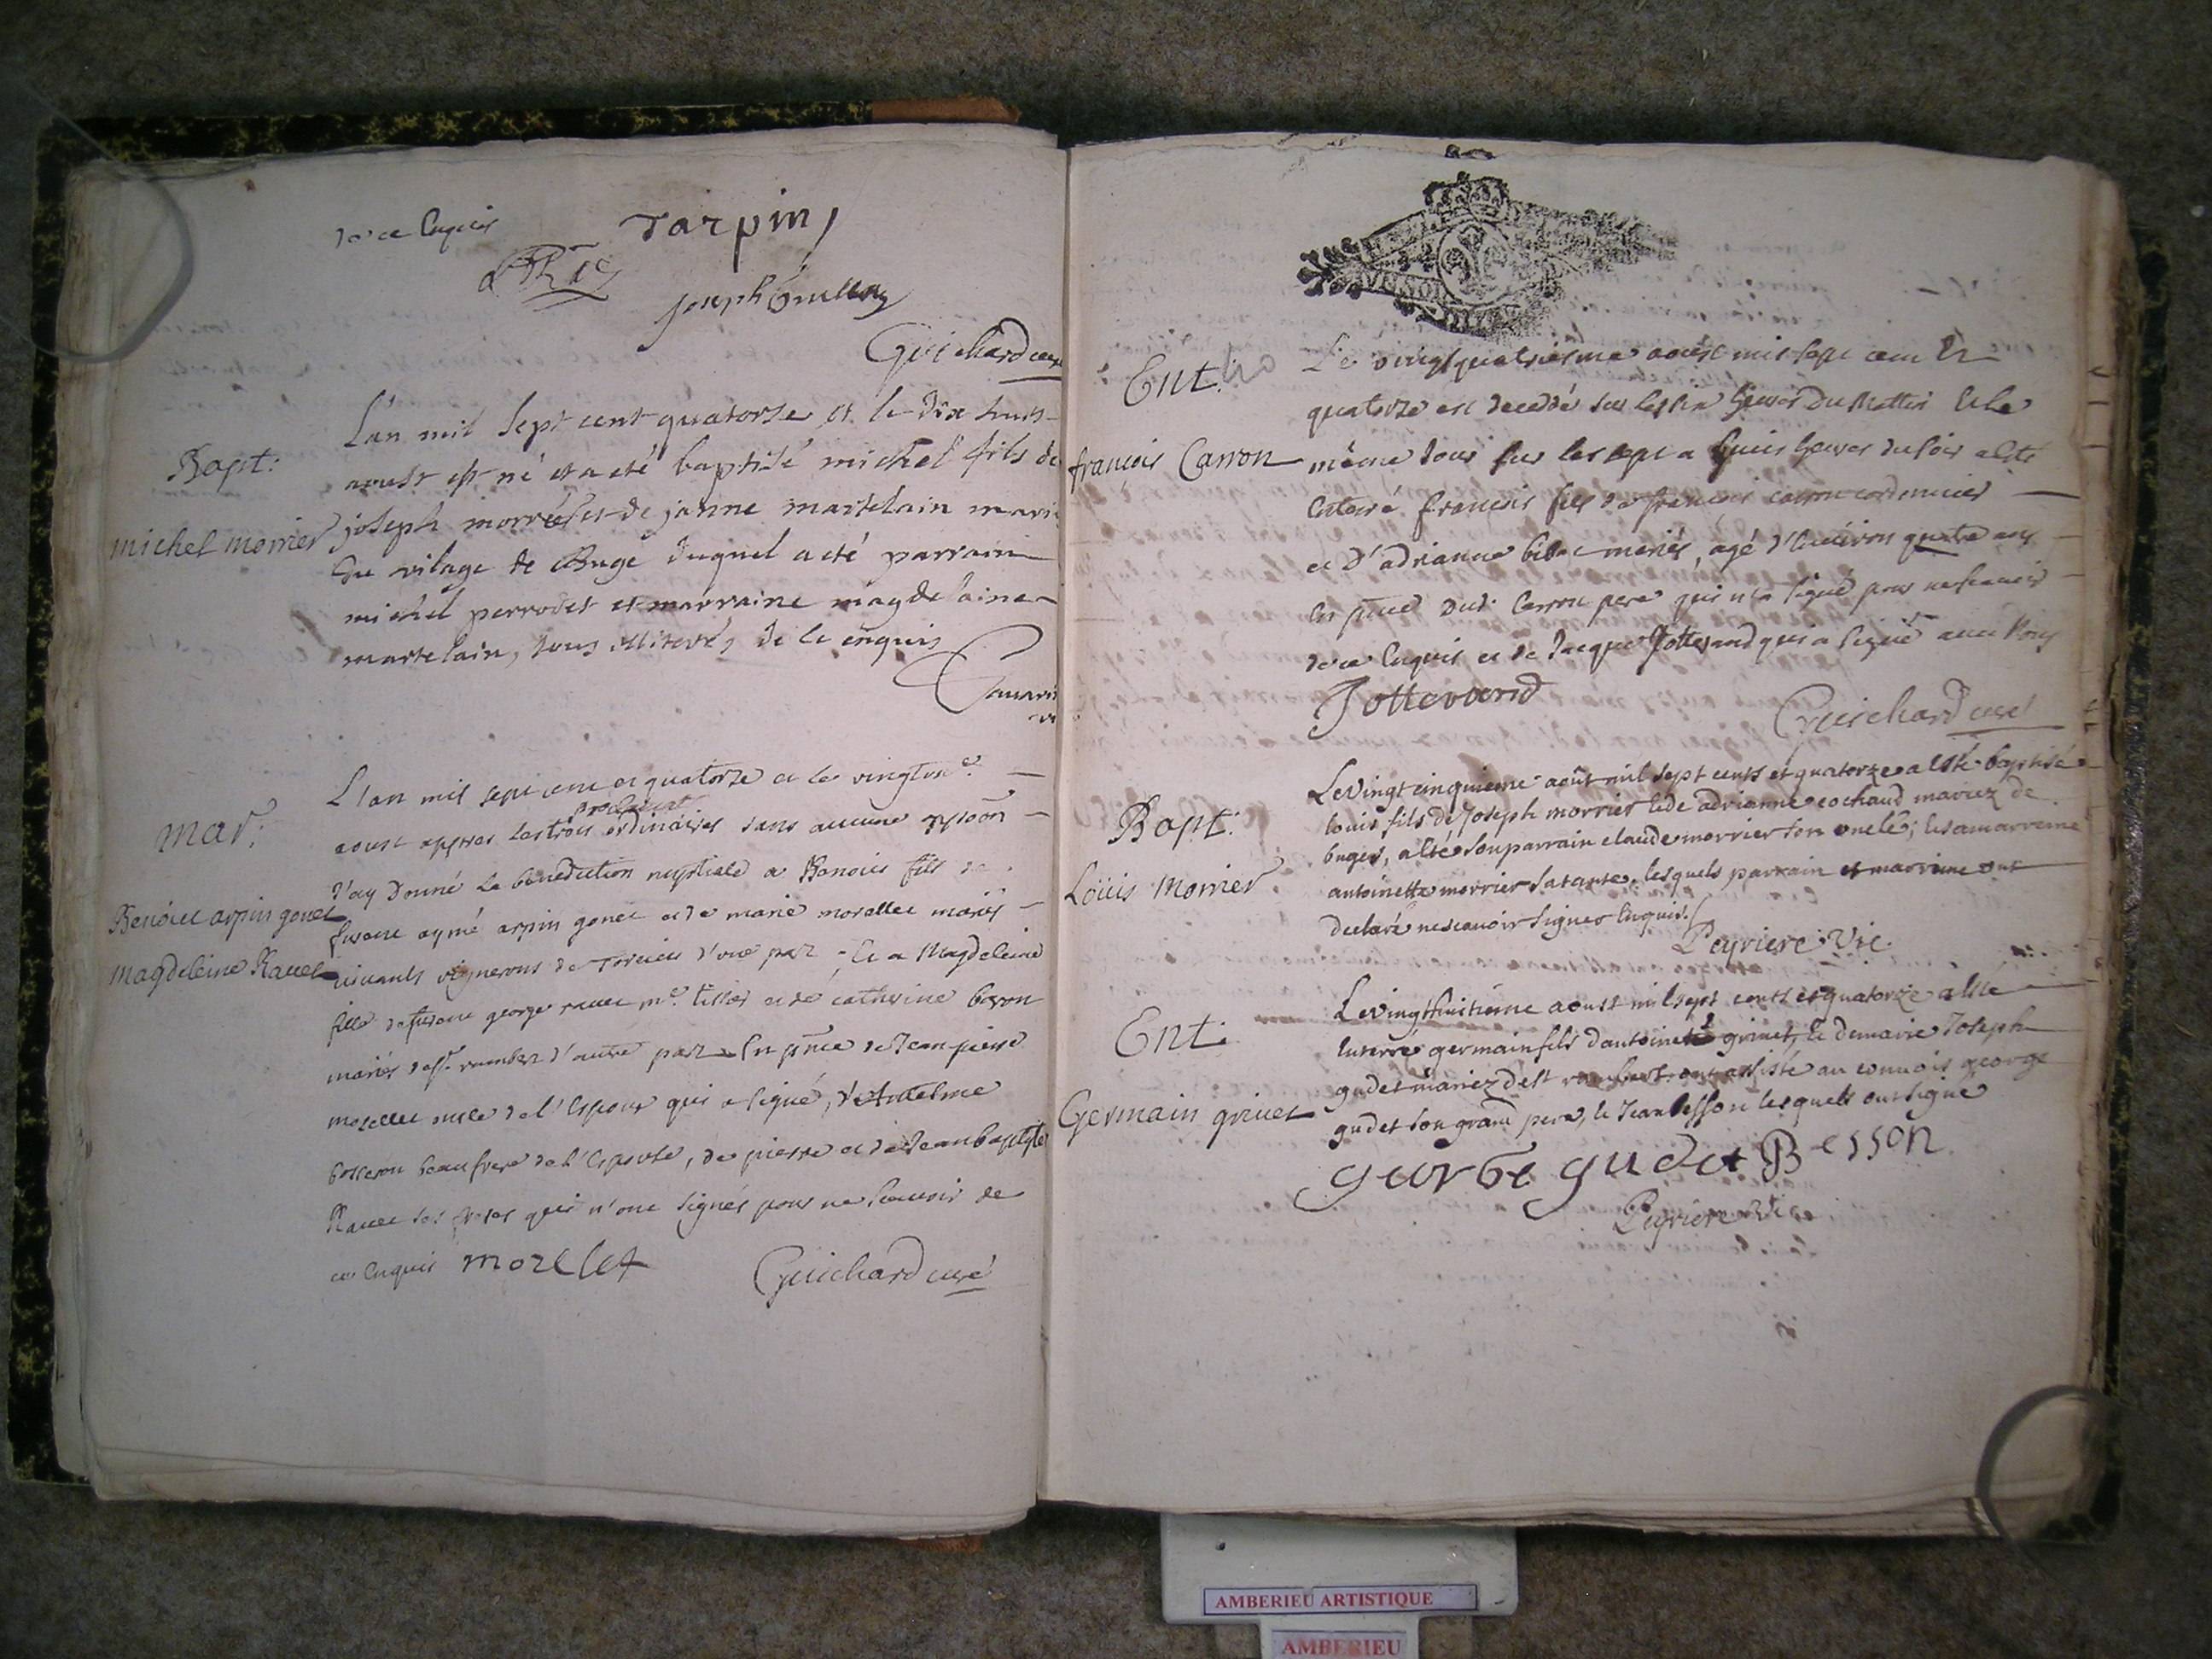 de ce Enquis
Tarpin
Joseph
Guichard curé
Bapt:
michel morrier
L'an mil sept cent quatorse et le dix huit
aoust est né et a eté baptisé michel fils de
joseph morrier et de janne martelain marié
du vilage de Bugé duquel a eté parrain
michel perrodet et marraine magdelaine
martelain, tous illiterés de ce enquis
mar:
Benoict arpin gonet
magdeleine Rauet
L'an mil sept cent et quatorze et le vingt
aoust appres les trois ordinaires sans aucune
J'ay donné la benediction nuptiale a Benoict fils de
aymé arpin gonet et de marie morellet mariés
vivants vignerons de torcieu d'une part, Et a Magdeleine
fille de george rauet me tissier et de catherine
mariés de st rambert d'autre part En pnce de Jean pierre
morellet oncle de l'Espoux qui a signé, d'Antelme
beaufrere de l'Espouse, de pierre et de Jean baptiste
Rauet ses freres qui n'ont signés pour ne scauoir de
ce Enquis morellet
Guichard curé
Ent.
françois Carron
Le vingtquatriesme aoust mil sept cent et
quatorze est decedé sur les six heures du Mattin et le
même Jour sur les sept a huict heures du soir a été
Enterré françois fils de françois carron cordonnier
et d'adrianne mariés, agé d'Enuiron quatre ans
En pnce dud. Carron pere qui n'a signé pour ne scauoir
de ce Enquis et de Jacque Jottevand qui a signé auec Nous
Jottevand
Guichard curé
Bapt:
Loüis Morrier
Le vingt cinquieme août mil sept cents et quatorze a esté baptisé
louis fils de Joseph morrier et de adrianne cochaud mariez de
buges, a esté son parrain claude morrier son oncle; et sa marreine
antoinette morrier sa tante. lesquels parrain et marreine ont
declaré ne scauoir signer Enquis.
Peyriere Vic.
Ent:
Germain griuet
Le vingt huitieme aoust mil sept cents et quatorze a esté
Enterré germain fils d'antoine griuet, et de marie Joseph
gudet mariez de st rambert. ont assisté au conuois george
gudet son grand pere, et Jean besson lesquels ont signé
george gudet Besson
Peyriere Vic.
AMBERIEU ARTISTIQUE
AMBERIEU